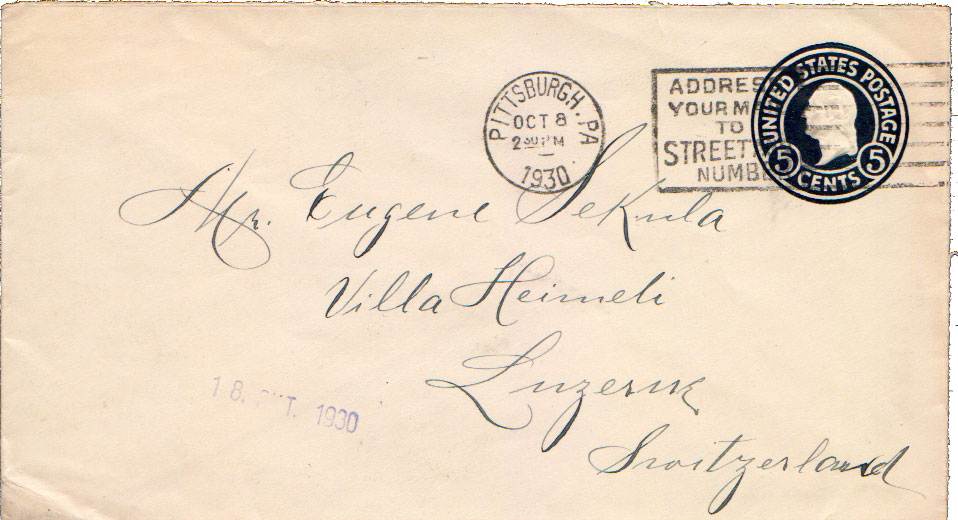 PITTSBURGH, PA
OCT 8
2 30 PM
1930
ADDRES
YOUR M
TO
STREET
NUMB
UNITED STATES POSTAGE
5 CENTS 5
Mr. Eugene Sekula
Villa Heimeli
Luzerne
Switzerland
18. KT. 1930